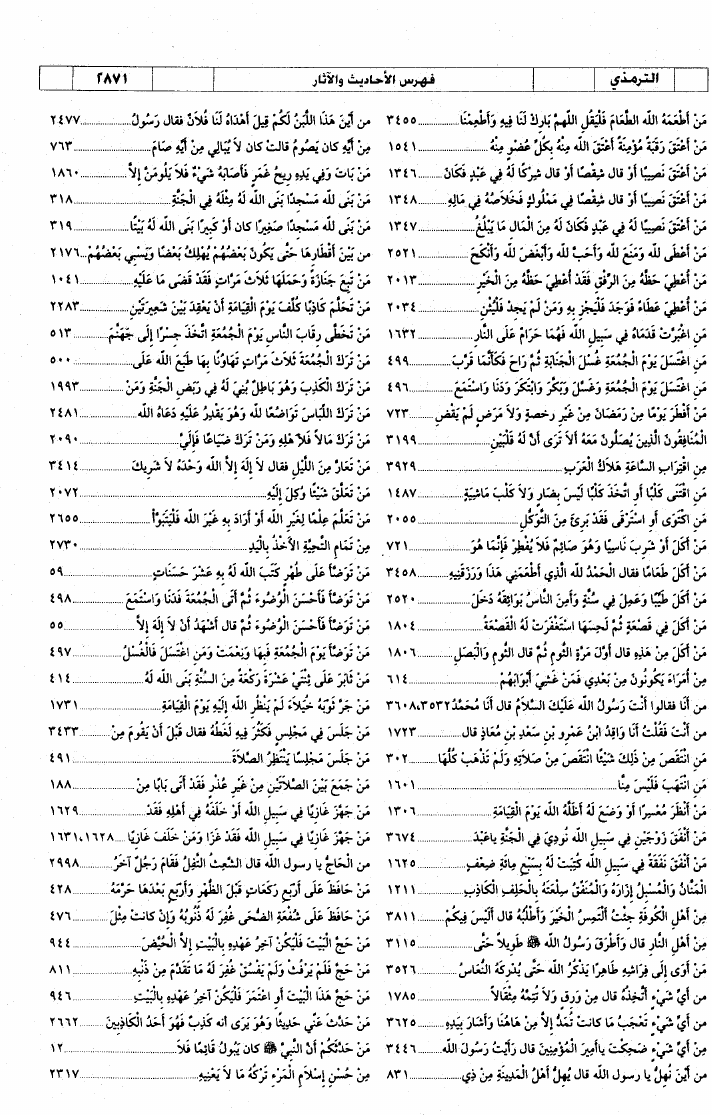 الترمذي
فهرس الأحاديث والآثار
٢٨٧١
مَنْ أَطْعَمَهُ الله الطَّعَامَ فَلْيَقُلِ اللَّهمَّ بَارِكْ لَنَا فِيهِ وَأَطْعِمْنَا ٣٤٥٥
مَنْ أَعْتَقَ رَقَبَةً مُؤْمِنَةً أَعْتَقَ اللَّه مِنْهُ بِكُلِّ عُضْوٍ مِنْهُ ١٥٤١
مَنْ أَعْتَقَ نَصِيبًا أَوْ قال شِقْصًا أَوْ قال شِرْكًا لَهُ فِي عَبْدٍ فَكَانَ ١٣٤٦
مَنْ أَعْتَقَ نَصِيبًا أَوْ قال شِقْصًا فِي مَمْلُوكٍ فَخَلاَصُهُ فِي مَالِهِ ١٣٤٨
مَنْ أَعْتَقَ نَصِيبًا لَهُ فِي عَبْدٍ فَكَانَ لَهُ مِنَ الْمَالِ مَا يَبْلُغُ ١٣٤٧
مَنْ أَعْطَى لله وَمَنَعَ لله وَأَحَبَّ لله وَأَبْغَضَ لله وَأَنْكَحَ ٢٥٢١
مَنْ أُعْطِيَ حَظَّهُ مِنَ الرِّفْقِ فَقَدْ أُعْطِيَ حَظَّهُ مِنَ الْخَيْرِ ٢٠١٣
مَنْ أُعْطِيَ عَطَاءً فَوَجَدَ فَلْيَجْزِ بِهِ وَمَنْ لَمْ يَجِدْ فَلْيُثْنِ ٢٠٣٤
مَنِ اغْبَرَّتْ قَدَمَاهُ فِي سَبِيلِ الله فَهُمَا حَرَامٌ عَلَى النَّارِ ١٦٣٢
مَنِ اغْتَسَلَ يَوْمَ الْجُمُعَةِ غُسْلَ الْجَنَابَةِ ثُمَّ رَاحَ فَكَأَنَّمَا قَرَّبَ ٤٩٩
مَنِ اغْتَسَلَ يَوْمَ الْجُمُعَةِ وَغَسَّلَ وَبَكَّرَ وَابْتَكَرَ وَدَنَا وَاسْتَمَعَ ٤٩٦
مَنْ أَفْطَرَ يَوْمًا مِنْ رَمَضَانَ مِنْ غَيْرِ رخصةٍ وَلاَ مَرَضٍ لَمْ يَقْضِ ٧٢٣
الْمُنَافِقُونَ الَّذِينَ يُصَلُّونَ مَعَهُ أَلاَ تَرَى أَنَّ لَهُ قَلْبَيْنِ ٣١٩٩
مِنِ اقْتِرَابِ السَّاعَةِ هَلاَكُ الْعَرَبِ ٣٩٢٩
مَنِ اقْتَنَى كَلْبًا أَوِ اتَّخَذَ كَلْبًا لَيْسَ بِضَارٍ وَلاَ كَلْبَ مَاشِيَةٍ ١٤٨٧
مَنِ اكْتَوَى أَوِ اسْتَرْقَى فَقَدْ بَرِئَ مِنَ التَّوَكُّلِ ٢٠٥٥
مَنْ أَكَلَ أَوْ شَرِبَ نَاسِيًا وَهُوَ صَائِمٌ فَلاَ يُفْطِرْ فَإِنَّمَا هُوَ ٧٢١
مَنْ أَكَلَ طَعَامًا فقال الْحَمْدُ لله الَّذِي أَطْعَمَنِي هَذَا وَرَزَقَنِيهِ ٣٤٥٨
مَنْ أَكَلَ طَيِّبًا وَعَمِلَ فِي سُنَّةٍ وَأَمِنَ النَّاسُ بَوَائِقَهُ دَخَلَ ٢٥٢٠
مَنْ أَكَلَ فِي قَصْعَةٍ ثُمَّ لَحِسَهَا اسْتَغْفَرَتْ لَهُ الْقَصْعَةُ ١٨٠٤
مَنْ أَكَلَ مِنْ هَذِهِ قال أَوَّلَ مَرَّةٍ الثُّومِ ثُمَّ قال الثُّومِ وَالْبَصَلِ ١٨٠٦
مِنْ أُمَرَاءَ يَكُونُونَ مِنْ بَعْدِي فَمَنْ غَشِيَ أَبْوَابَهُمْ ٦١٤
من أَنَا فقالوا أَنْتَ رَسُولُ الله عَلَيْكَ السَّلاَمُ قال أَنَا مُحَمَّدُ ٣٥٣٢، ٣٦٠٨
من أَنْتَ فَقُلْتُ أَنَا وَاقِدُ ابْنُ عَمْرِو بْنِ سَعْدِ بْنِ مُعَاذٍ قال ١٧٢٣
مَنِ انْتَقَصَ مِنْ ذَلِكَ شَيْئًا انْتَقَصَ مِنْ صَلاَتِهِ وَلَمْ تَذْهَبْ كُلُّهَا ٣٠٢
مَنِ انْتَهَبَ فَلَيْسَ مِنَّا ١٦٠١
مَنْ أَنْظَرَ مُعْسِرًا أَوْ وَضَعَ لَهُ أَظَلَّهُ الله يَوْمَ الْقِيَامَةِ ١٣٠٦
مَنْ أَنْفَقَ زَوْجَيْنِ فِي سَبِيلِ الله نُودِيَ فِي الْجَنَّةِ ياعَبْدَ ٣٦٧٤
مَنْ أَنْفَقَ نَفَقَةً فِي سَبِيلِ الله كُتِبَتْ لَهُ بِسَبْعِ مِائَةِ ضِعْفٍ ١٦٢٥
الْمَنَّانُ وَالْمُسْبِلُ إِزَارَهُ وَالْمُنَفِّقُ سِلْعَتَهُ بِالْحَلِفِ الْكَاذِبِ ١٢١١
مِنْ أَهْلِ الْكُوفَةِ جِئْتُ أَلْتَمِسُ الْخَيْرَ وَأَطْلُبُهُ قال أَلَيْسَ فِيكُمْ ٣٨١١
مِنْ أَهْلِ النَّارِ قال وَأَطْرَقَ رَسُولُ الله ﷺ طَوِيلاً حَتَّى ٣١١٥
مَنْ أَوَى إِلَى فِرَاشِهِ طَاهِرًا يَذْكُرُ الله حَتَّى يُدْرِكَهُ النُّعَاسُ ٣٥٢٦
من أَيِّ شَيْءٍ أَتَّخِذُهُ قال مِنْ وَرِقٍ وَلاَ تُتِمَّهُ مِثْقَالاً ١٧٨٥
من أَيِّ شَيْءٍ تَعْجَبُ مَا كانت تُمَدُّ إِلاَّ مِنْ هَاهُنَا وَأَشَارَ بِيَدِهِ ٣٦٢٥
مِنْ أَيِّ شَيْءٍ ضَحِكْتَ ياأمِيرَ الْمُؤْمِنِينَ قال رَأَيْتُ رَسُولَ الله ٣٤٤٦
من أَيْنَ نُهِلُّ يا رسول الله قال يُهِلُّ أَهْلُ الْمَدِينَةِ مِنْ ذِي ٨٣١
من أَيْنَ هَذَا اللَّبَنُ لَكُمْ قِيلَ أَهْدَاهُ لَنَا فُلاَنٌ فقال رَسُولُ ٢٤٧٧
مِنْ أَيِّهِ كان يَصُومُ قالت كان لاَ يُبَالِي مِنْ أَيِّهِ صَامَ ٧٦٣
مَنْ بَاتَ وَفِي يَدِهِ رِيحُ غَمَرٍ فَأَصَابَهُ شَيْءٌ فَلاَ يَلُومَنَّ إِلاَّ ١٨٦٠
مَنْ بَنَى لله مَسْجِدًا بَنَى الله لَهُ مِثْلَهُ فِي الْجَنَّةِ ٣١٨
مَنْ بَنَى لله مَسْجِدًا صَغِيرًا كان أَوْ كَبِيرًا بَنَى الله لَهُ بَيْتًا ٣١٩
من بَيْنَ أَقْطَارِهَا حَتَّى يَكُونَ بَعْضُهُمْ يُهْلِكُ بَعْضًا وَيَسْبِي بَعْضُهُمْ ٢١٧٦
مَنْ تَبِعَ جَنَازَةً وَحَمَلَهَا ثَلاَثَ مَرَّاتٍ فَقَدْ قَضَى مَا عَلَيْهِ ١٠٤١
مَنْ تَحَلَّمَ كَاذِبًا كُلِّفَ يَوْمَ الْقِيَامَةِ أَنْ يَعْقِدَ بَيْنَ شَعِيرَتَيْنِ ٢٢٨٣
مَنْ تَخَطَّى رِقَابَ النَّاسِ يَوْمَ الْجُمُعَةِ اتَّخَذَ جِسْرًا إِلَى جَهَنَّمَ ٥١٣
مَنْ تَرَكَ الْجُمُعَةَ ثَلاَثَ مَرَّاتٍ تَهَاوُنًا بِهَا طَبَعَ الله عَلَى ٥٠٠
مَنْ تَرَكَ الْكَذِبَ وَهُوَ بَاطِلٌ بُنِيَ لَهُ فِي رَبَضِ الْجَنَّةِ وَمَنْ ١٩٩٣
مَنْ تَرَكَ اللِّبَاسَ تَوَاضُعًا لله وَهُوَ يَقْدِرُ عَلَيْهِ دَعَاهُ الله ٢٤٨١
مَنْ تَرَكَ مَالاً فَلأَهْلِهِ وَمَنْ تَرَكَ ضَيَاعًا فَإِلَيَّ ٢٠٩٠
مَنْ تَعَارَّ مِنَ اللَّيْلِ فقال لاَ إِلَهَ إِلاَّ الله وَحْدَهُ لاَ شَرِيكَ ٣٤١٤
مَنْ تَعَلَّقَ شَيْئًا وُكِلَ إِلَيْهِ ٢٠٧٢
مَنْ تَعَلَّمَ عِلْمًا لِغَيْرِ الله أَوْ أَرَادَ بِهِ غَيْرَ الله فَلْيَتَبَوَّأْ ٢٦٥٥
مِنْ تَمَامِ التَّحِيَّةِ الأَخْذُ بِالْيَدِ ٢٧٣٠
مَنْ تَوَضَّأَ عَلَى طُهْرٍ كَتَبَ الله لَهُ بِهِ عَشْرَ حَسَنَاتٍ ٥٩
مَنْ تَوَضَّأَ فَأَحْسَنَ الْوُضُوءَ ثُمَّ أَتَى الْجُمُعَةَ فَدَنَا وَاسْتَمَعَ ٤٩٨
مَنْ تَوَضَّأَ فَأَحْسَنَ الْوُضُوءَ ثُمَّ قال أَشْهَدُ أَنْ لاَ إِلَهَ إِلاَّ ٥٥
مَنْ تَوَضَّأَ يَوْمَ الْجُمُعَةِ فَبِهَا وَنِعْمَتْ وَمَنِ اغْتَسَلَ فَالْغُسْلُ ٤٩٧
مَنْ ثَابَرَ عَلَى ثِنْتَيْ عَشْرَةَ رَكْعَةً مِنَ السُّنَّةِ بَنَى الله لَهُ ٤١٤
مَنْ جَرَّ ثَوْبَهُ خُيَلاَءَ لَمْ يَنْظُرِ الله إِلَيْهِ يَوْمَ الْقِيَامَةِ ١٧٣١
مَنْ جَلَسَ فِي مَجْلِسٍ فَكَثُرَ فِيهِ لَغَطُهُ فقال قَبْلَ أَنْ يَقُومَ مِنْ ٣٤٣٣
مَنْ جَلَسَ مَجْلِسًا يَنْتَظِرُ الصَّلاَةَ ٤٩١
مَنْ جَمَعَ بَيْنَ الصَّلاَتَيْنِ مِنْ غَيْرِ عُذْرٍ فَقَدْ أَتَى بَابًا مِنْ ١٨٨
مَنْ جَهَّزَ غَازِيًا فِي سَبِيلِ الله أَوْ خَلَفَهُ فِي أَهْلِهِ فَقَدْ ١٦٢٩
مَنْ جَهَّزَ غَازِيًا فِي سَبِيلِ الله فَقَدْ غَزَا وَمَنْ خَلَفَ غَازِيًا ١٦٢٨، ١٦٣١
من الْحَاجُّ يا رسول الله قال الشَّعِثُ التَّفِلُ فَقَامَ رَجُلٌ آخَرُ ٢٩٩٨
مَنْ حَافَظَ عَلَى أَرْبَعِ رَكَعَاتٍ قَبْلَ الظُّهْرِ وَأَرْبَعٍ بَعْدَهَا حَرَّمَهُ ٤٢٨
مَنْ حَافَظَ عَلَى شُفْعَةِ الضُّحَى غُفِرَ لَهُ ذُنُوبُهُ وَإِنْ كانت مِثْلَ ٤٧٦
مَنْ حَجَّ الْبَيْتَ فَلْيَكُنْ آخِرُ عَهْدِهِ بِالْبَيْتِ إِلاَّ الْحُيَّضَ ٩٤٤
مَنْ حَجَّ فَلَمْ يَرْفُثْ وَلَمْ يَفْسُقْ غُفِرَ لَهُ مَا تَقَدَّمَ مِنْ ذَنْبِهِ ٨١١
مَنْ حَجَّ هَذَا الْبَيْتَ أَوِ اعْتَمَرَ فَلْيَكُنْ آخِرُ عَهْدِهِ بِالْبَيْتِ ٩٤٦
مَنْ حَدَّثَ عَنِّي حَدِيثًا وَهُوَ يَرَى أَنه كَذِبٌ فَهُوَ أَحَدُ الْكَاذِبَيْنِ ٢٦٦٢
مَنْ حَدَّثَكُمْ أَنَّ النَّبِيَّ ﷺ كان يَبُولُ قَائِمًا فَلاَ ١٢
مِنْ حُسْنِ إِسْلاَمِ الْمَرْءِ تَرْكُهُ مَا لاَ يَعْنِيهِ ٢٣١٧